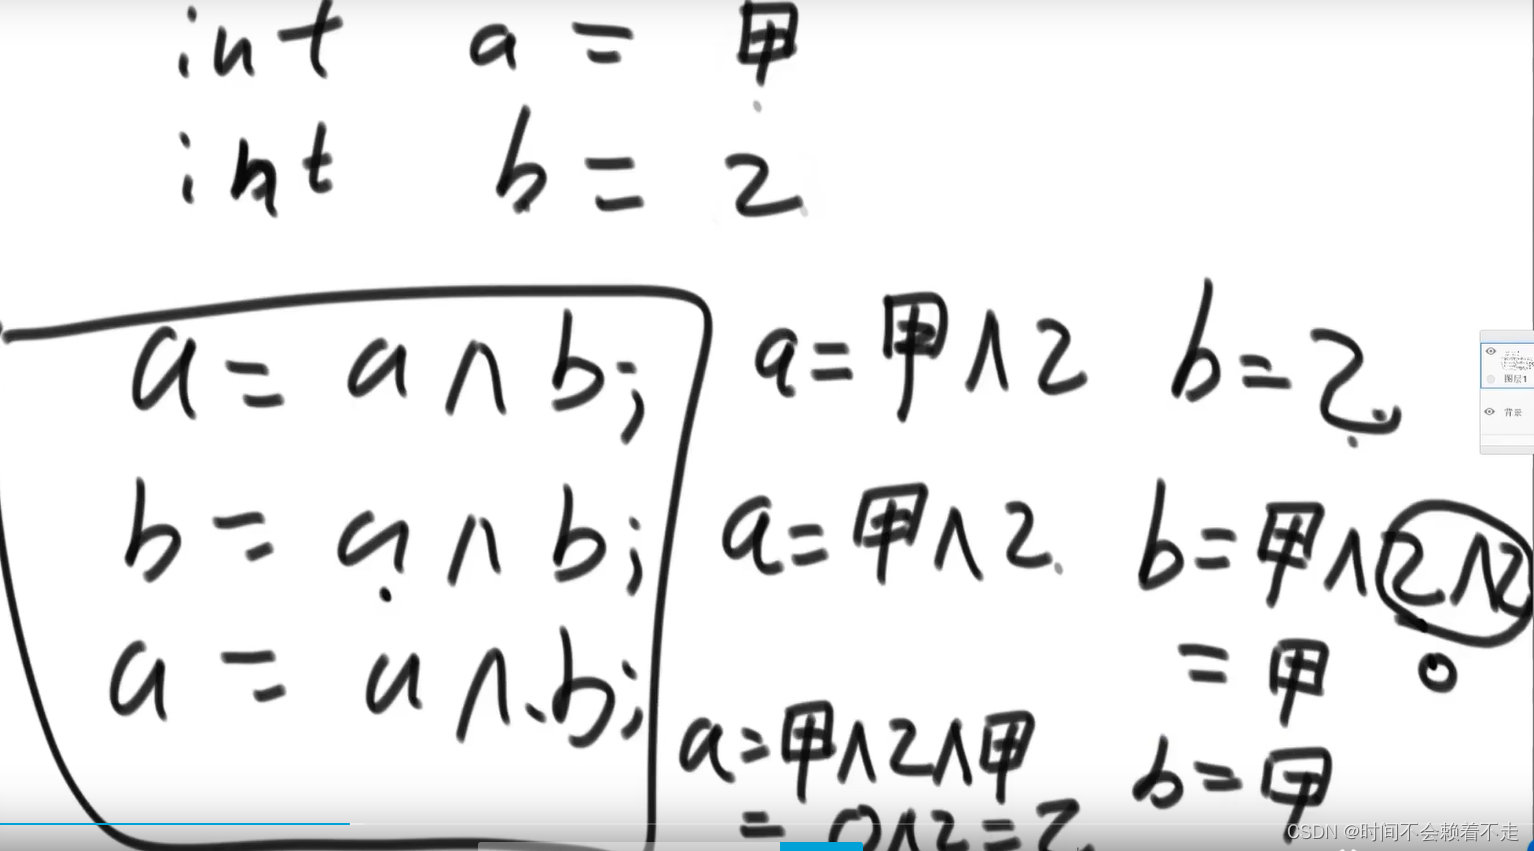 int a = 甲
int b = 乙
a = a ^ b;
a = 甲 ^ 乙
b = 乙
b = a ^ b;
a = 甲 ^ 乙
b = 甲 ^ 乙 ^ 乙
0
= 甲
a = a ^ b;
a = 甲 ^ 乙 ^ 甲
= 0 ^ 乙 = 乙
b = 甲
图层1
背景
CSDN @时间不会赖着不走